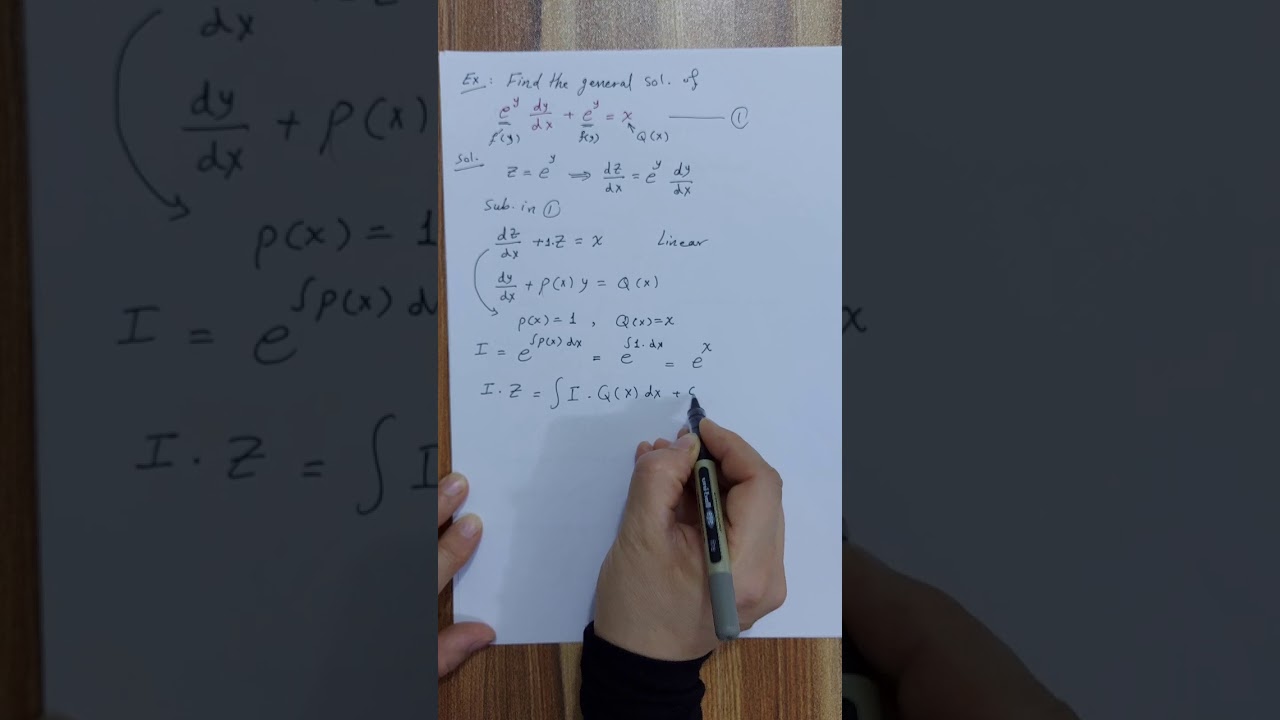 Ex.: Find the general sol. of
e^y dy/dx + e^y = x ——— ①
f'(y) f(y) Q(x)
Sol.
z = e^y ⟹ dz/dx = e^y dy/dx
Sub. in ①
dz/dx + 1.z = x Linear
dy/dx + p(x) y = Q(x)
p(x) = 1 , Q(x) = x
I = e^∫p(x) dx = e^∫1. dx = e^x
I . z = ∫ I . Q(x) dx +